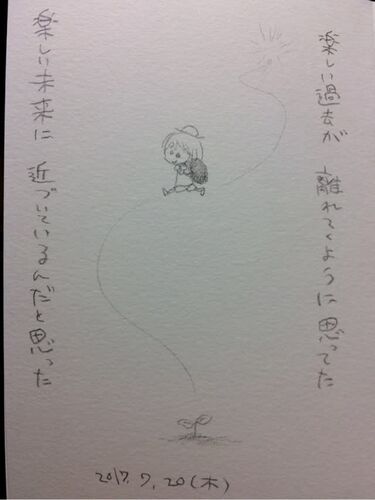 楽しい過去が 離れてくように思ってた
楽しい未来に 近づいているんだと思った
2017.7.20(木)